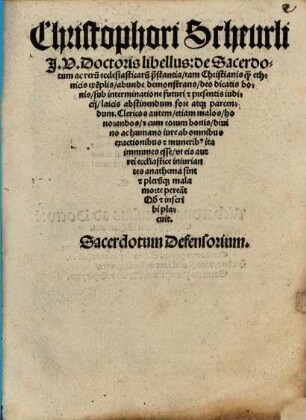 Christophori Scheurli
J. V. Doctoris libellus: de Sacerdo-
tum ac rerū ecclesiasticarū p̄stantia/tam Christianis q̄ȝ eth-
nicis exēplis/abunde demonstrans/deo dicatis bo-
nis/sub interminatione futuri ⁊ presentis iudi-
cij/laicis abstinendum fore atqȝ parcen-
dum. Clericos autem/etiam malos/ho-
norandos/⁊ cum eorum bonis/diui
no ac humano iure ab omnibus
exactionibus ⁊ muneribꝰ ita
immunes esse/vt eis aut
rei ecclīastice iniurian
tes anathema sint
⁊ plerūqȝ mala
morte pereāt
Qd̄ ⁊ inscri
bi pla-
cuit.
Sacerdotum Defensorium.